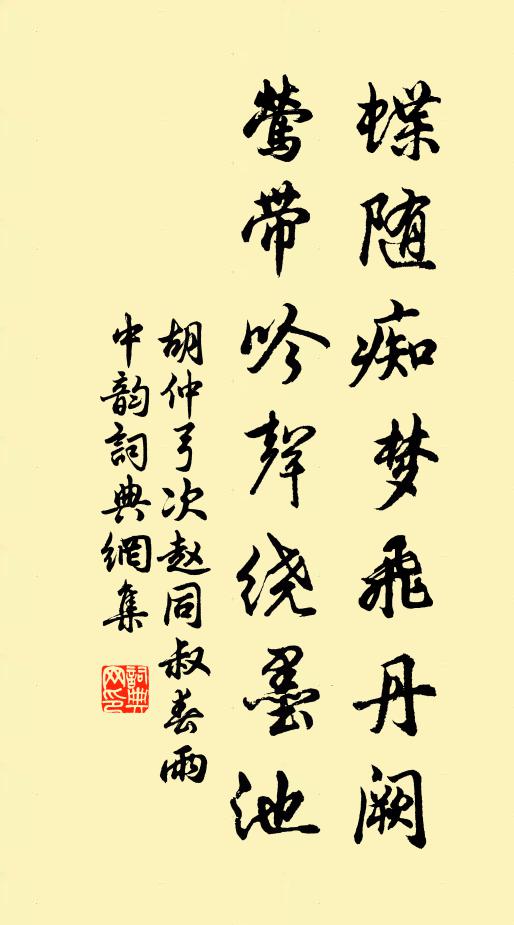 蝶随痴梦飛丹阙
莺带吟聲绕墨池
胡仲弓次赵同叔春雨
中韵詞典網集
詞典
网印